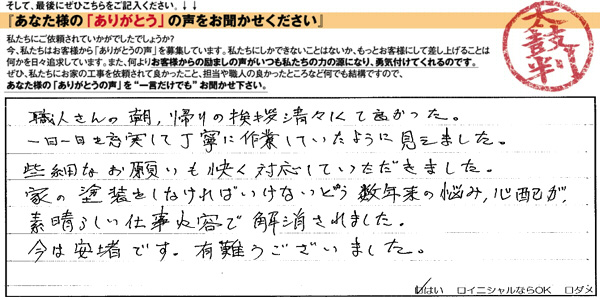 そして、最後にぜひこちらをご記入ください。↓↓
『あなた様の「ありがとう」の声をお聞かせください』
私たちにご依頼されていかがでしたでしょうか?
今、私たちはお客様から「ありがとうの声」を募集しています。私たちにしかできないことはないか、もっとお客様にして差し上げることは
何かを日々追求しています。また、何よりお客様からの励ましの声がいつも私たちの力の源になり、勇気付けてくれるのです。
ぜひ、私たちにお家の工事を依頼されて良かったこと、担当や職人の良かったところなど何でも結構ですので、
あなた様の「ありがとうの声」を"一言だけでも"お聞かせ下さい。
太鼓判
職人さんの朝、帰りの挨拶清々しくて良かった。
一日一日を充実して丁寧に作業していたように見えました。
些細なお願いも快く対応していただきました。
家の塗装をしなければいけないという数年来の悩み、心配が、
素晴らしい仕事内容で解消されました。
今は安堵です。有難うございました。
はい ロイニシャルならOK ロダメ